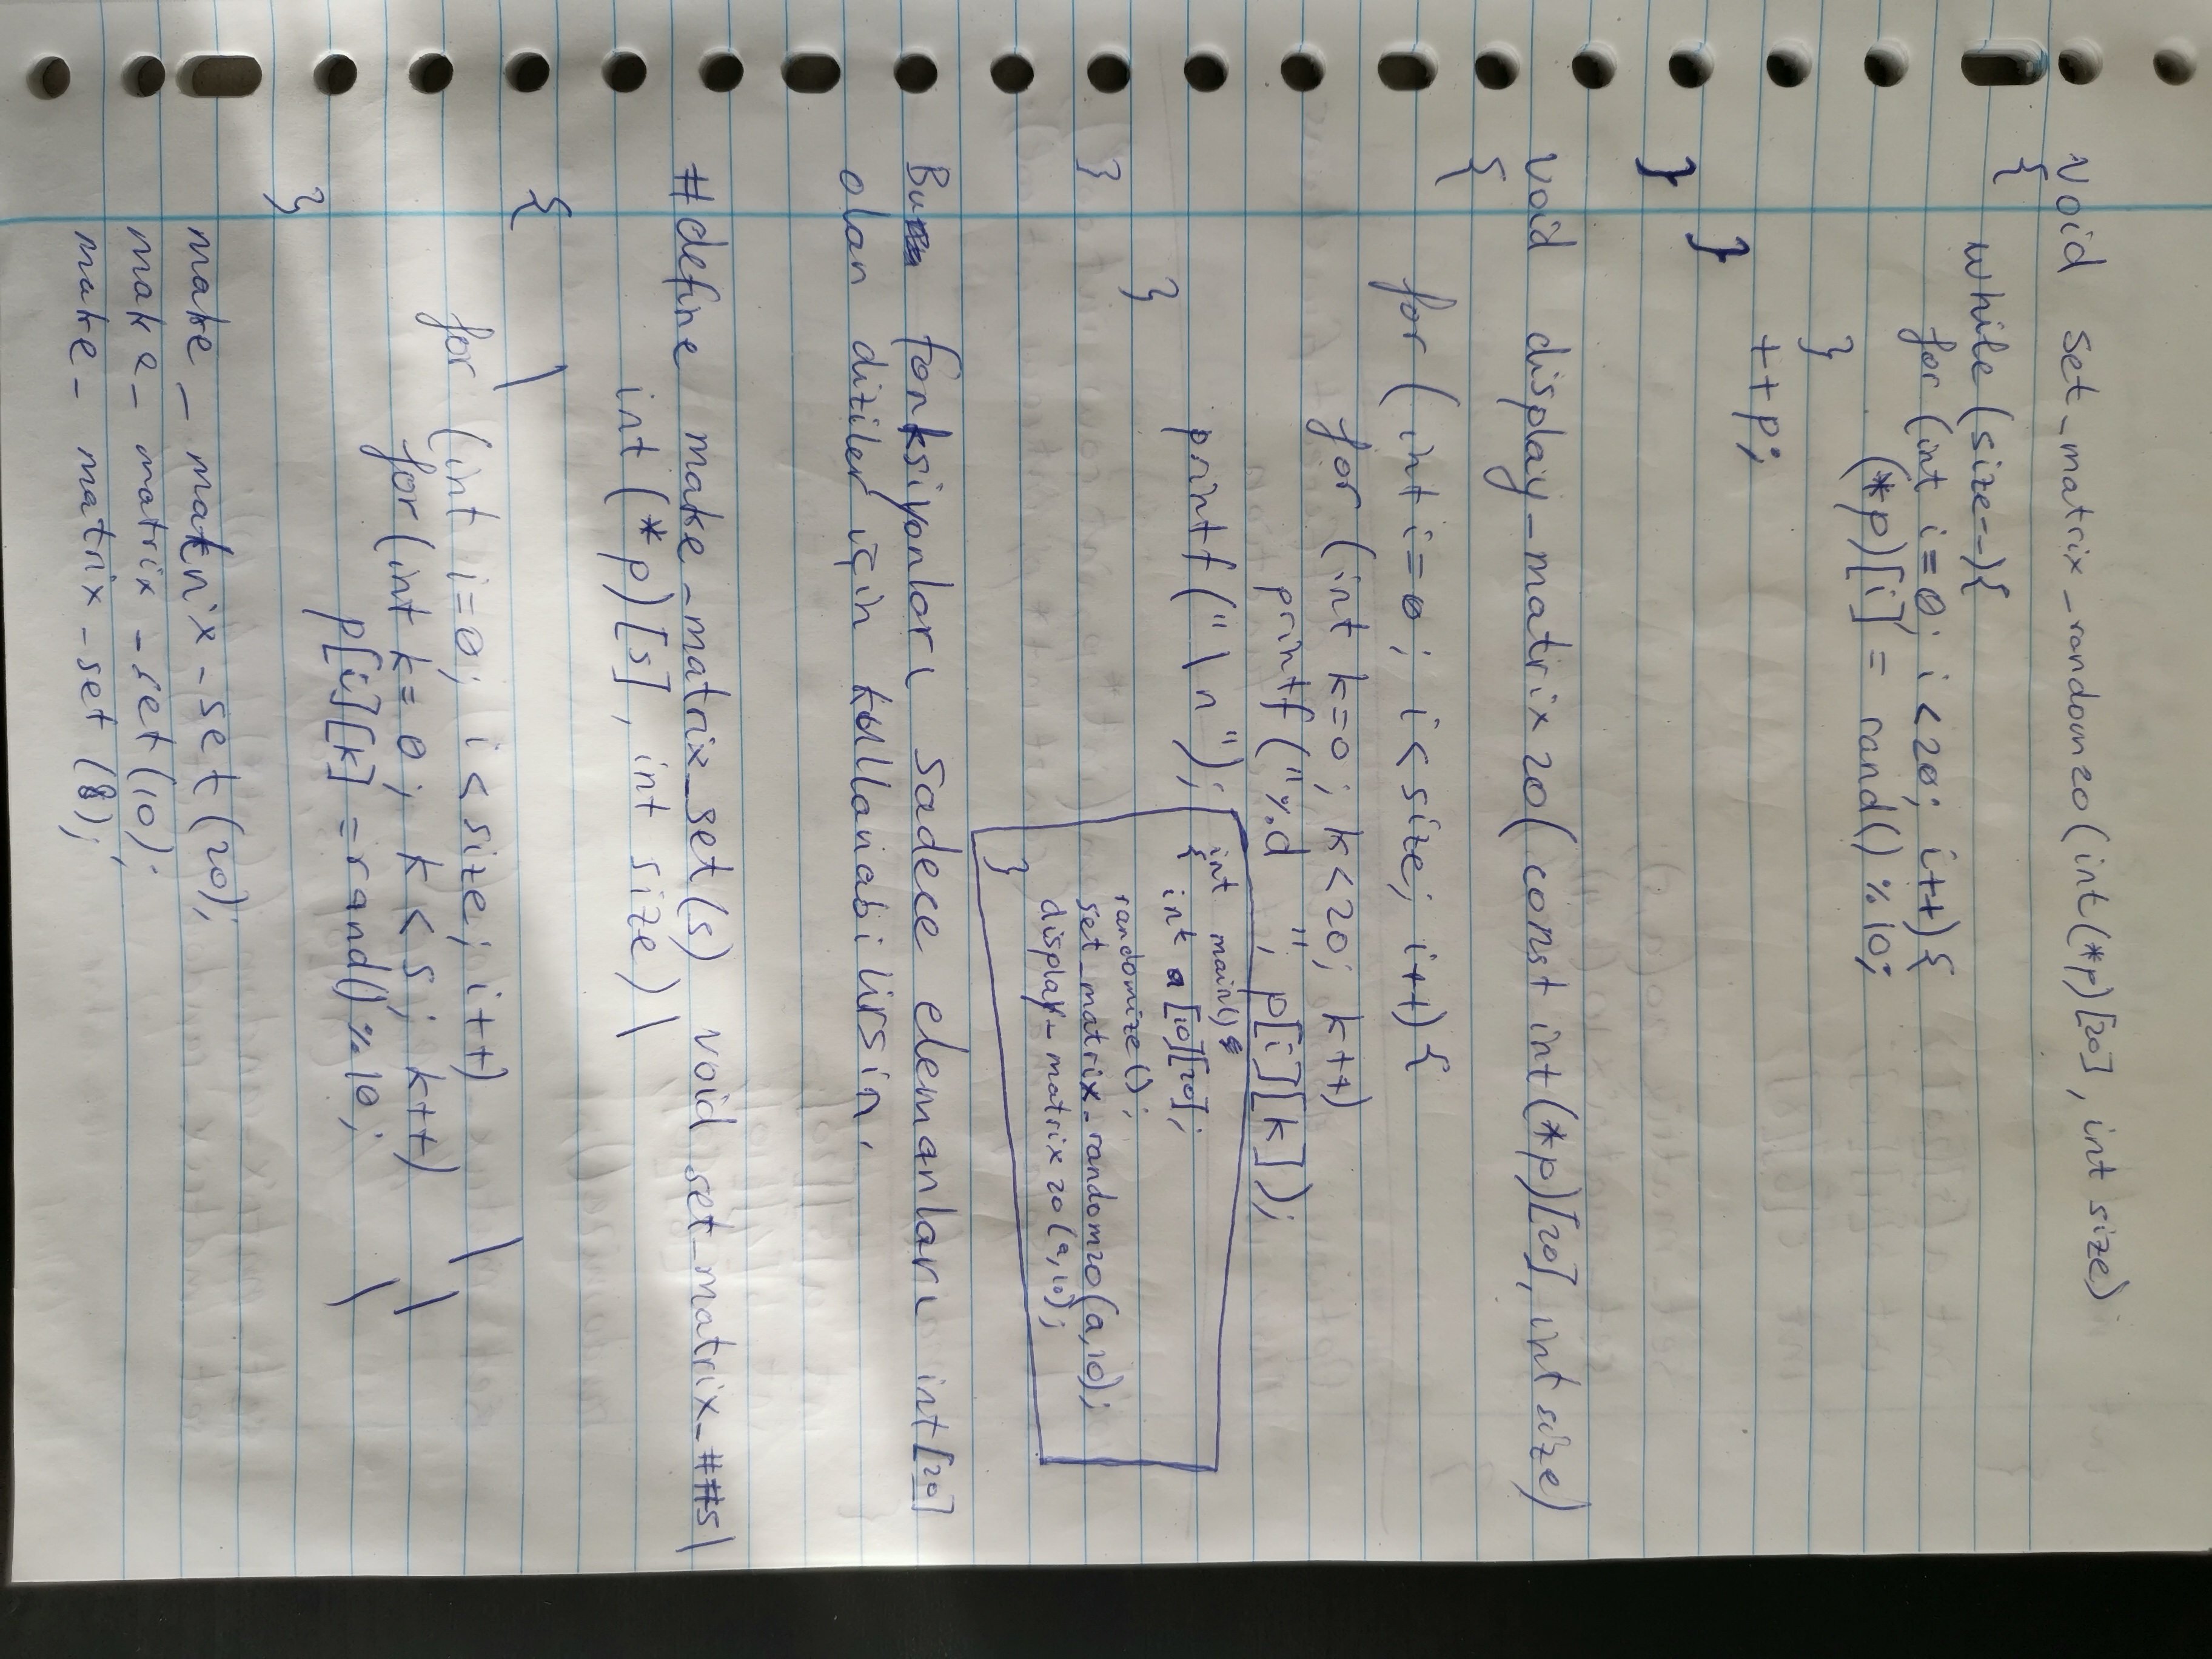 void set_matrix_random20(int(*p)[20], int size)
{
while (size--){
for (int i=0; i<20; i++){
(*p)[i] = rand()%10;
}
++p;
}
}
void display_matrix20(const int(*p)[20], int size)
{
for (int i=0; i<size; i++){
for (int k=0; k<20; k++)
printf("%d ", p[i][k]);
printf("\n");
}
}
int main()
{
int a[10][20];
randomize();
set_matrix_random20(a,10);
display_matrix20(a,10);
}
Bu fonksiyonları sadece elemanları int[20]
olan diziler için kullanabilirsin.
#define make_matrix_set(s) void set_matrix_##s\
int(*p)[s], int size)\
{ \
for (int i=0; i<size; i++) \
for(int k=0; k<s; k++) \
p[i][k] =rand()%10; \
}
make_matrix_set(20);
make_matrix_set(10);
make_matrix_set(8);